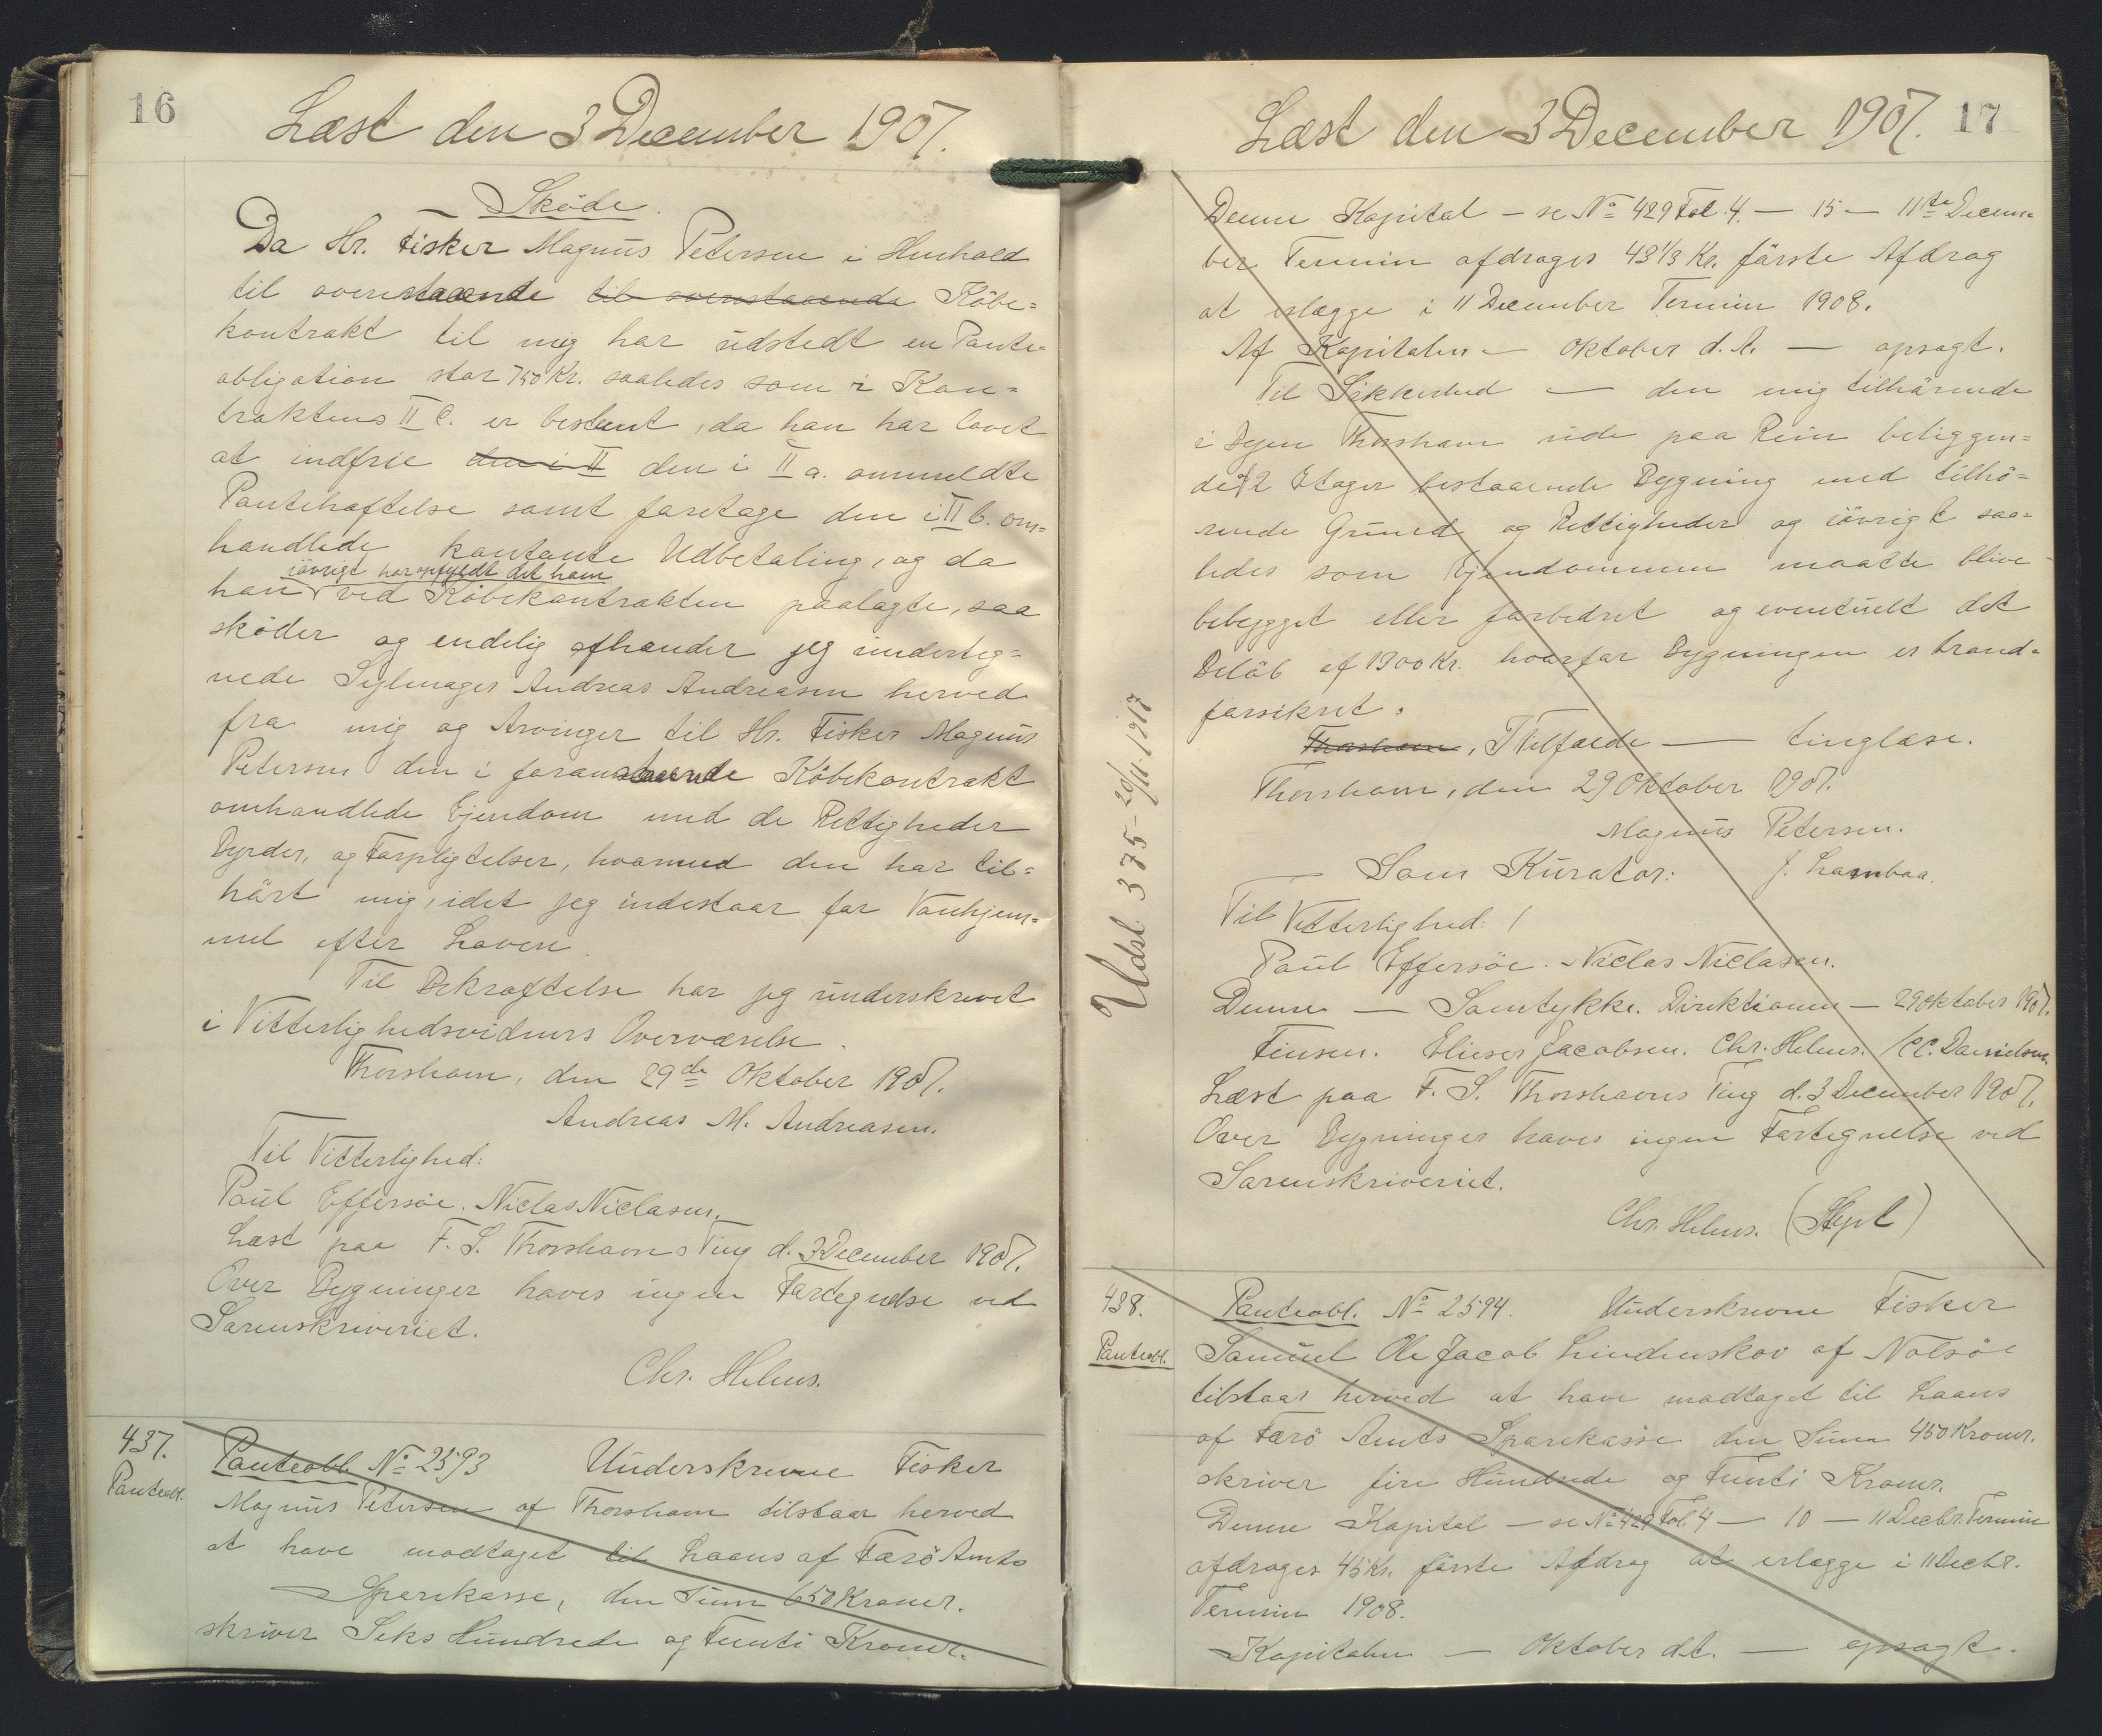 16
Læst den 3 December 1907.
Sköde.
Da Hr. Fisker Magnus Petersen i Henhold
til ovenstaaende til ovenstaaende Köbe=
kontrakt til mig har udstedt en Pante=
obligation stor 750 Kr. saaledes som i Kon=
traktens II C. er bestemt, da han har lovet
at indfrie den i II den i II a. ommeldte
Pantehæftelse samt foretage den i II b. om=
handlede kontante Udbetaling, og da
iövrigt har opfyldt det ham
han ved Köbekontrakten paalagte, saa
sköder og endelig afhænder jeg underteg=
nede Sejlmager Andreas Andreasen herved
fra mig og Arvinger til Hr. Fisker Magnus
Petersen den i foranstaaende Köbekontrakt
omhandlede Ejendom med de Rettigheder
Byrder, og Forpligtelser, hvormed den har til=
hört mig, idet jeg indestaar for Vanhjem=
mel efter Loven.
Til Bekræftelse har jeg underskrevet
i Vitterlighedsvidners Overværelse.
Thorshavn, den 29de Oktober 1907.
Andreas M. Andreasen.
Til Vitterlighed:
Paul Effersöe. Niclas Niclasen.
Læst paa F. S. Thorshavns Ting d. 3 December 1907.
Over Bygninger haves ingen Fortegnelse ved
Sorenskriveriet.
Chr. Helms.
437.
Panteobl.
Panteobl. No 2593 Underskrevne Fisker
Magnus Petersen af Thorshavn tilstaar herved
at have modtaget til Laans af Færö Amts
Sparekasse, den Sum 650 Kroner.
skriver Seks Hundrede og Femti Kroner.
17
Læst den 3 December 1907.
Denne Kapital - se No 429 Fol. 4. - 15 - 11te Decem=
ber Termin afdrages 43 1/3 Kr. förste Afdrag
at erlægge i 11 December Termin 1908.
Af Kapitalen - Oktober d. A. - opsagt.
Til Sikkerhed - den mig tilhörende
i Byen Thorshavn inde paa Rein beliggen=
de af 2 Etager bestaaende Bygning med tilhö=
rende Grund og Rettigheder og iövrigt saa=
ledes som Ejendommen maatte blive
bebygget eller forbedret og eventuelt det
Belöb af 1900 Kr. hvorfor Bygningen er brand=
forsikret.
Thorshavn, I Tilfælde - tinglæse.
Thorshavn, den 29 Oktober 1907.
Magnus Petersen.
Som Kurator: J. Lambaa.
Til Vitterlighed:
Paul Effersöe. Niclas Niclasen.
Denne - Samtykke. Direktionen - 29 Oktober 1907.
Finsen. Elieser Jacobsen. Chr. Helms. /C.C. Danielsen
Læst paa F. S. Thorshavns Ting d. 3 December 1907.
Over Bygninger haves ingen Fortegnelse ved
Sorenskriveriet.
Chr. Helms. (Stpl)
Udsl. 375 - 20/11. 1917
438.
Panteobl.
Panteobl. No 2594. Underskrevne Fisker
Samuel Ole Jacob Lindenskov af Nolsöe
tilstaar herved at have modtaget til Laans
af Færö Amts Sparekasse den Sum 450 Kroner.
skriver fire Hundrede og Femti Kroner.
Denne Kapital - se No 429 Fol. 4 - 10 - 11 Decbr. Termin
afdrages 45 Kr. förste Afdrag at erlægge i 11 Decbr.
Termin 1908.
Kapitalen - Oktober d.A. - opsagt.